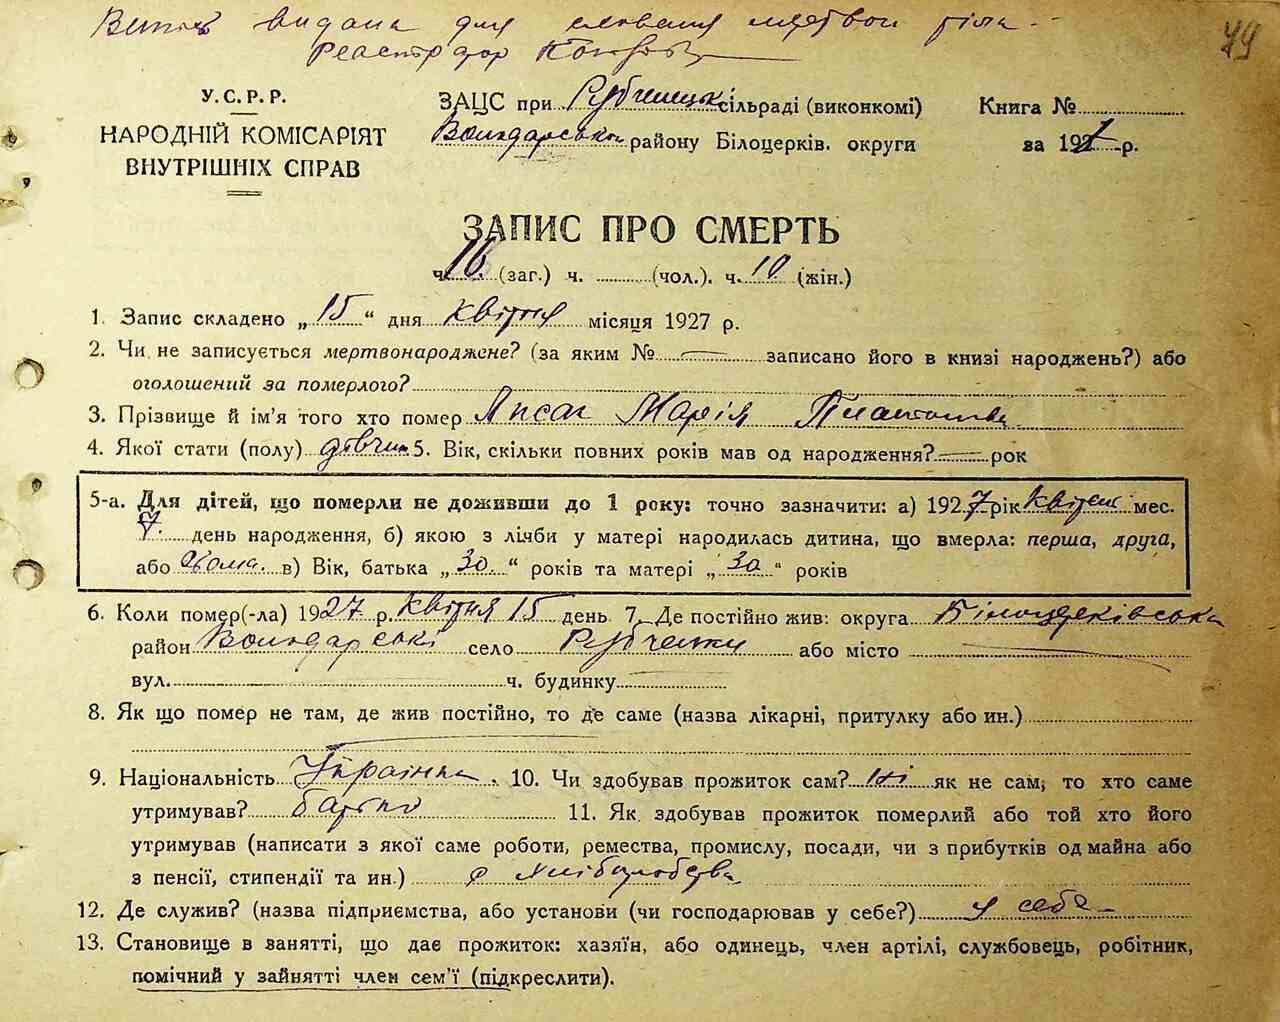 видана для мертвои тіла
Реєстратор
79
У.С.Р.Р.
НАРОДНІЙ КОМІСАРІЯТ
ВНУТРІШНІХ СПРАВ
ЗАЦС при Рубченецькі сільраді (виконкомі)
Володарськои району Білоцерків. округи
Книга №
за 1927 -р.
ЗАПИС ПРО СМЕРТЬ
ч. 16 (заг.) ч. (чол.). ч. 10 (жін.)
1. Запис складено „ 15 “ дня квітня місяця 1927 р.
2. Чи не записується мертвонароджене? (за яким № — записано його в книзі народжень?) або
оголошений за померлого?
3. Прізвище й ім'я того хто помер Марія
4. Якої стати (полу) дівчин 5. Вік, скільки повних років мав од народження? — рок
5-а. Для дітей, що померли не доживши до 1 року: точно зазначити: а) 1927 рік квітень мес.
7. день народження, б) якою з лічби у матері народилась дитина, що вмерла: перша, друга,
або в) Вік, батька „ 30. “ років та матері „ 30 “ років
6. Коли помер(-ла) 1927 р. квітня 15 день 7. Де постійно жив: округа Білоцерківська
район Володарські село Рубченки або місто
вул. ч. будинку
8. Як що помер не там, де жив постійно, то де саме (назва лікарні, притулку або ин.)
9. Національність Українка. 10. Чи здобував прожиток сам? ні як не сам, то хто саме
утримував? батько 11. Як здобував прожиток померлий або той хто його
утримував (написати з якої саме роботи, ремества, промислу, посади, чи з прибутків од майна або
з пенсії, стипендії та ин.) з хліборобства
12. Де служив? (назва підприємства, або установи (чи господарював у себе?) у себе
13. Становище в занятті, що дає прожиток: хазяїн, або одинець, член артілі, службовець, робітник,
помічний у зайнятті член сем'ї (підкреслити).